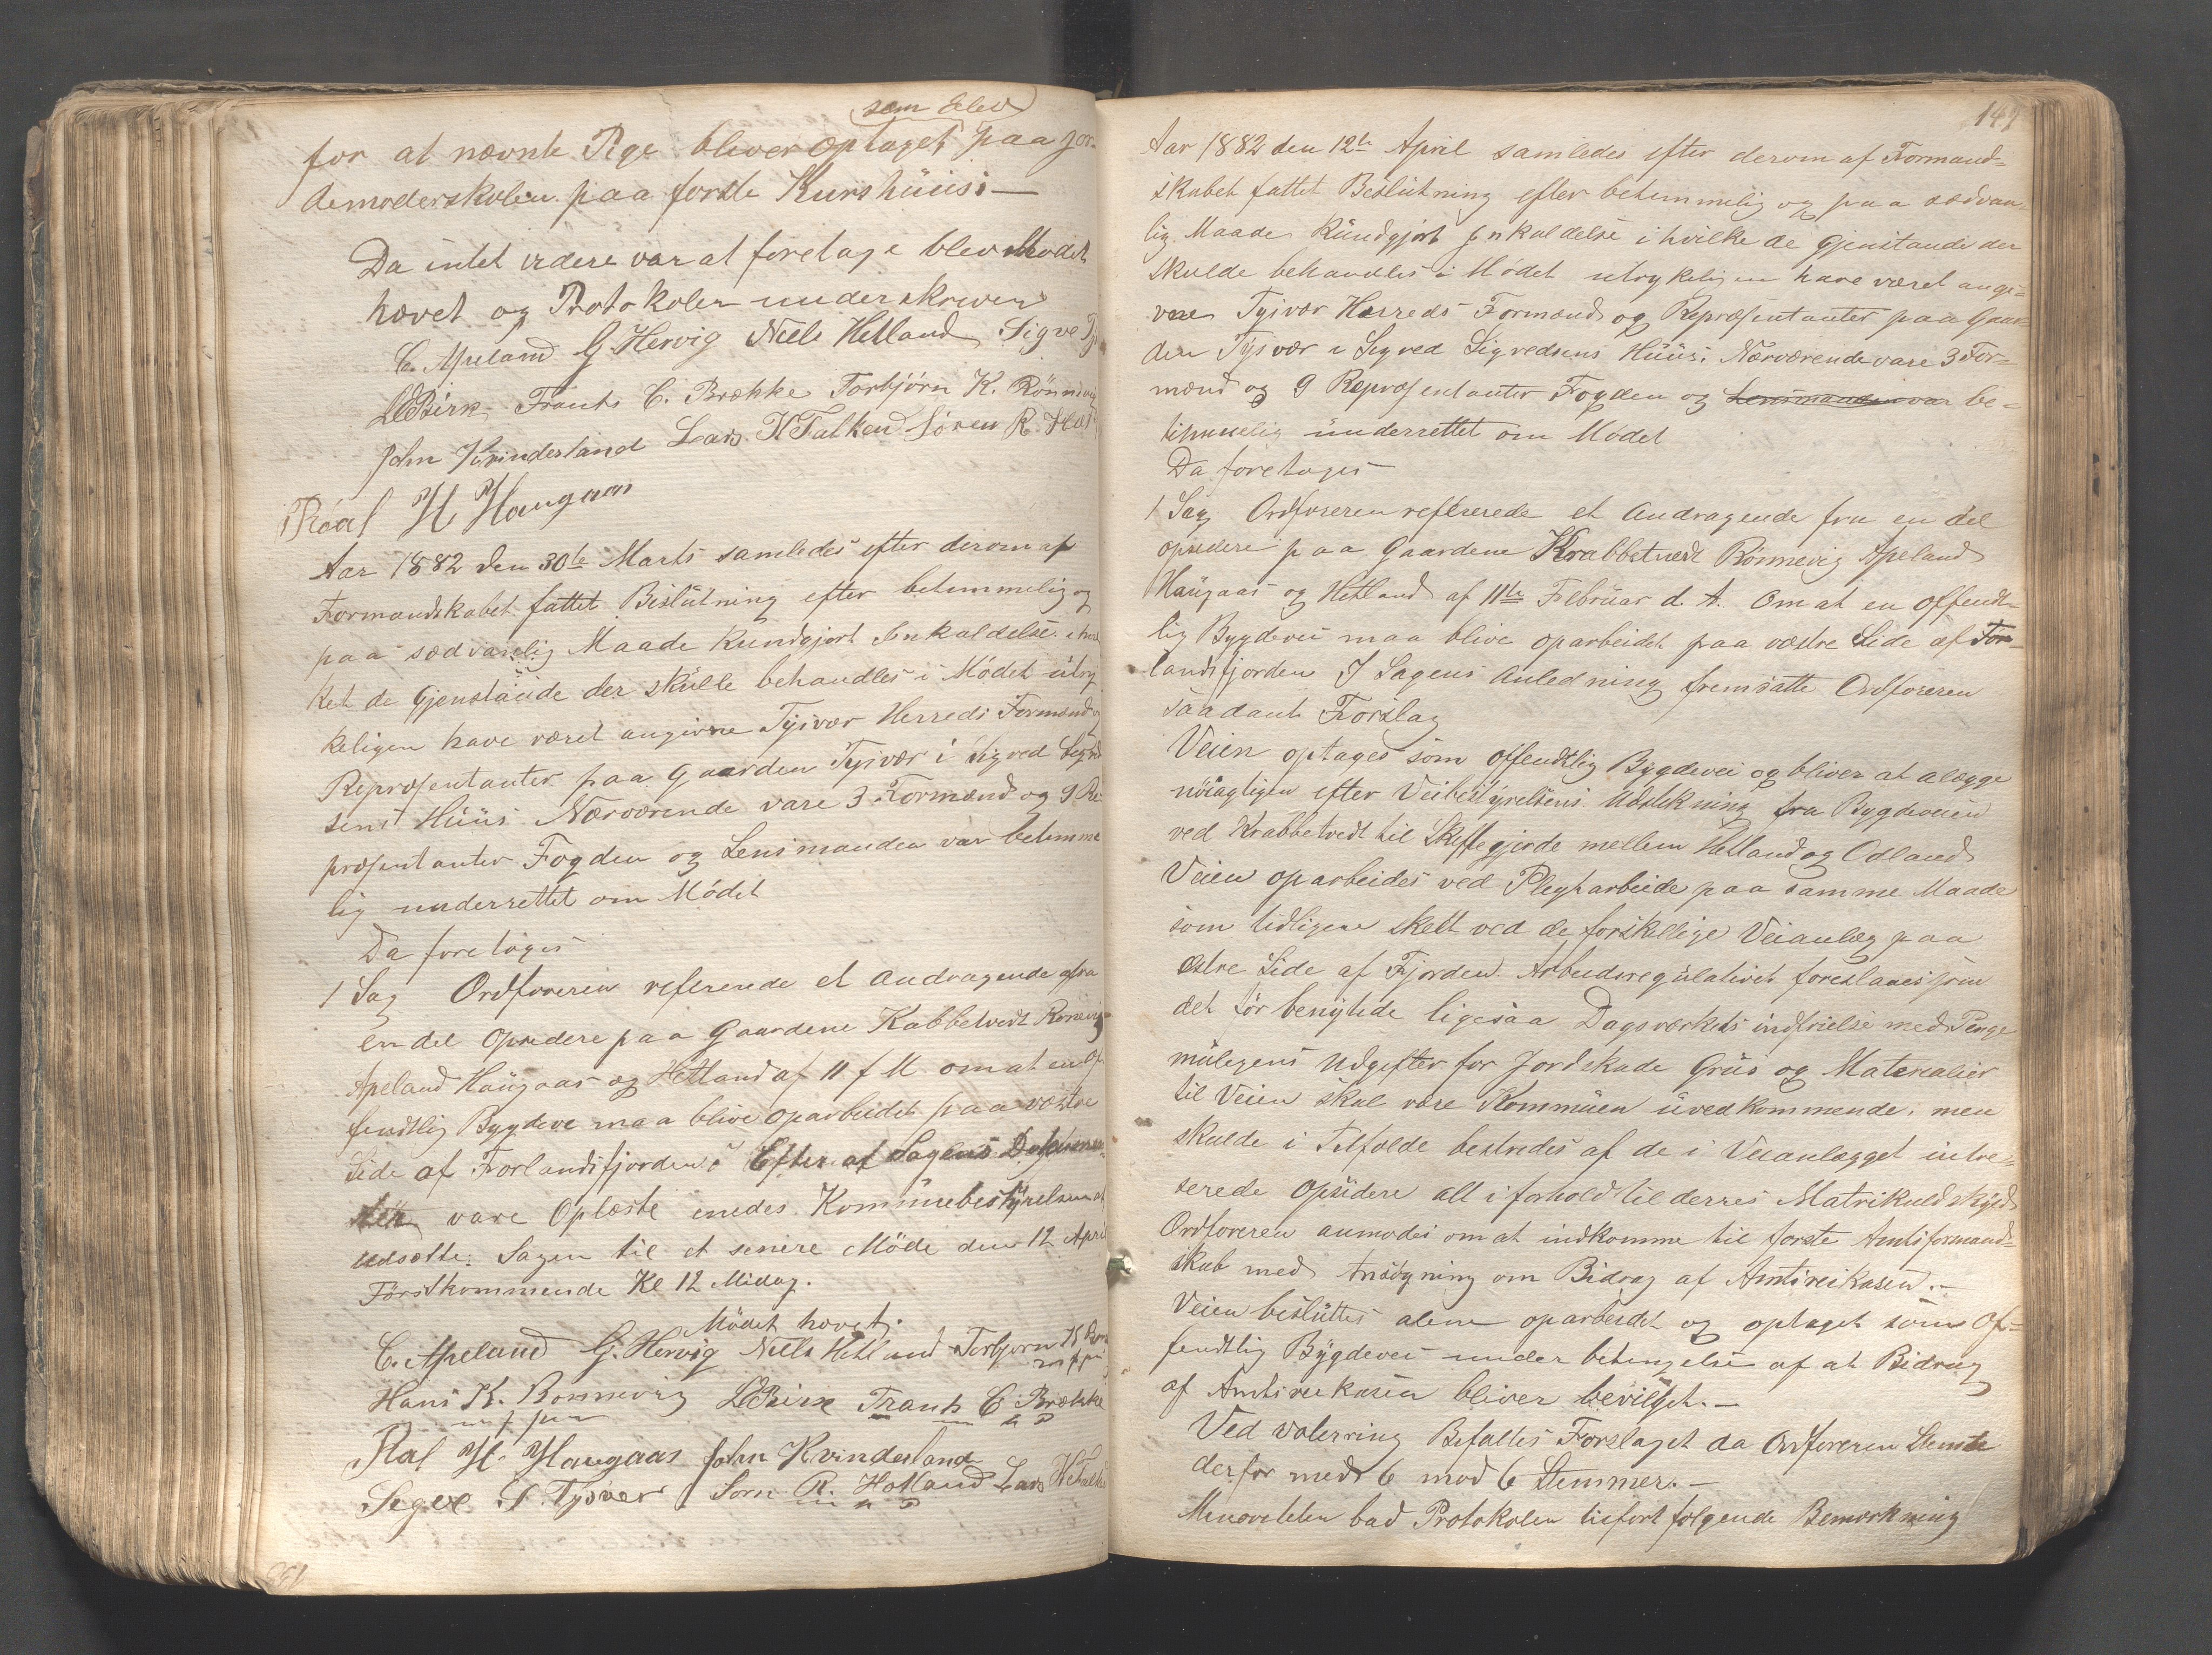 som Elev
for at nævnte Pige bliver optaget paa Jor-
demoderskolen paa forste Kurshüüs: —
Da intet videre var at foretage blev Modet
hævet og Protokolen underskreven
C. Apeland G. Hervig Niels Hetland Sigve
LBirk Frants C. Brække Torbjörn K. Rönnevig
John Kvindesland Lars N Falkeid Sören R
Roal H Haugaas
Aar 1882 den 30te Marts samledes efter derom af
Formandskabet fattet Beslütning efter betimmelig og
paa sædvanelig Maade Kundgjort Inkaldelse i hvil
ket de Gjenstande der skülle behandles i Mödet ütry
keligen have været angivne Tysvær Herreds Formænd og
Repræsentanter paa Gaarden Tysvær i Sigved Sigved
sens Hüüs Nærværende vare 3 Formænd og 9 Re
præsentanter Fogden og Lensmanden var betimme
lig underrettet om Mödet
Da foretoges
1 Sag Ordføreren refererede et Andragende fra
en del Opsidere paa Gaardene Kabbetvedt Rönevig
Apeland Haügaas og Hetland af 11 f M om at en Of
fendtlig Bygdeve maa blive oparbeidet paa vestre
Side af Forlandsfjorden Efter at Sagens Dokumen
ter vare Oplæste enedes Kommünebestÿrelsen at
Udsætte Sagen til et senere Möde den 12 April
Förstkommende Kl 12 Midag.
Mödet hævet.
C. Apeland G. Hervig Niels Hetland Torbjørn K
Hans K. Ronnevig LBirk Frants C Brække
m f p
Roal H. Haugaas John Kvindesland
Sigve S. Tysver Sörn R. Hotland Lars N Falkeid
149
Aar 1882 den 12te April samledes efter derom af Formand-
skabet fattet Beslütning efter betimmelig og paa sædvan-
lig Maade Kündgjort Inkaldelse i hvilke de Gjenstande der
skulde behandles i Mödet utrykeligen have været angi-
vne Tysvær Herreds Formænd og Repræsentanter paa Gaar-
den Tysvær i Sigved Sigvedsens Hüüs: Nærværende vare 3 For-
mænd og 9 Repræsentanter Fogden og Lensmanden var be-
timmelig ünderrettet om Mödet
Da foretoges
1 Sag Ordføreren refererede et Andragende fra en del
opsidere paa Gaardene Krabbetvedt Rönnevig Apeland
Haügaas og Hetland af 11te Februar d. A. Om at en offendt-
lig Bygdevei maa blive oparbeidet paa vestre Side af For-
landsfjorden I Sagens Anledning fremsatte Ordføreren
saadant Forslag
Veien optages som offendtlig Bygdevei og bliver at alægge
nöiagtigen efter Veibestyrelsens Udstikning fra Bygdeveien
ved Krabbetvedt til Skiftegjerde mellem Hetland og Odland
Veien oparbeides ved Pligtarbeide paa samme Maade
som tidligere skett ved de forskellige Veianlæg paa
östre Side af Fjorden. Arbeidsregülativet foreslaaes som
det för benyttede ligesaa Dagsværkets indfrielse med Penge
müligens Udgifter for Jordskade Grüs og Materialier
til Veien skal være Kommünen üvedkommende. men
skulde i Tilfælde bestredes af de i Veianlægget intre-
serede Opsidere alt i forhold til derres Matrikuldskyld
Ordføreren anmodes om at indkomme til förste Amtsformand-
skab med Ansögning om Bidrag af Amtsveikasen. —
Veien beslüttes alene oparbeidet og optaget som Of-
fendtlig Bÿgdevei under betingelse af at Bidrag
af Amtsveikasen bliver bevilget. —
Ved votering Befaltes Forslaget da Ordføreren Stemte
derfor med 6 mod 6 Stemmer. —
Menoriteten bad Protokolen tilfört fölgende Bemærkning